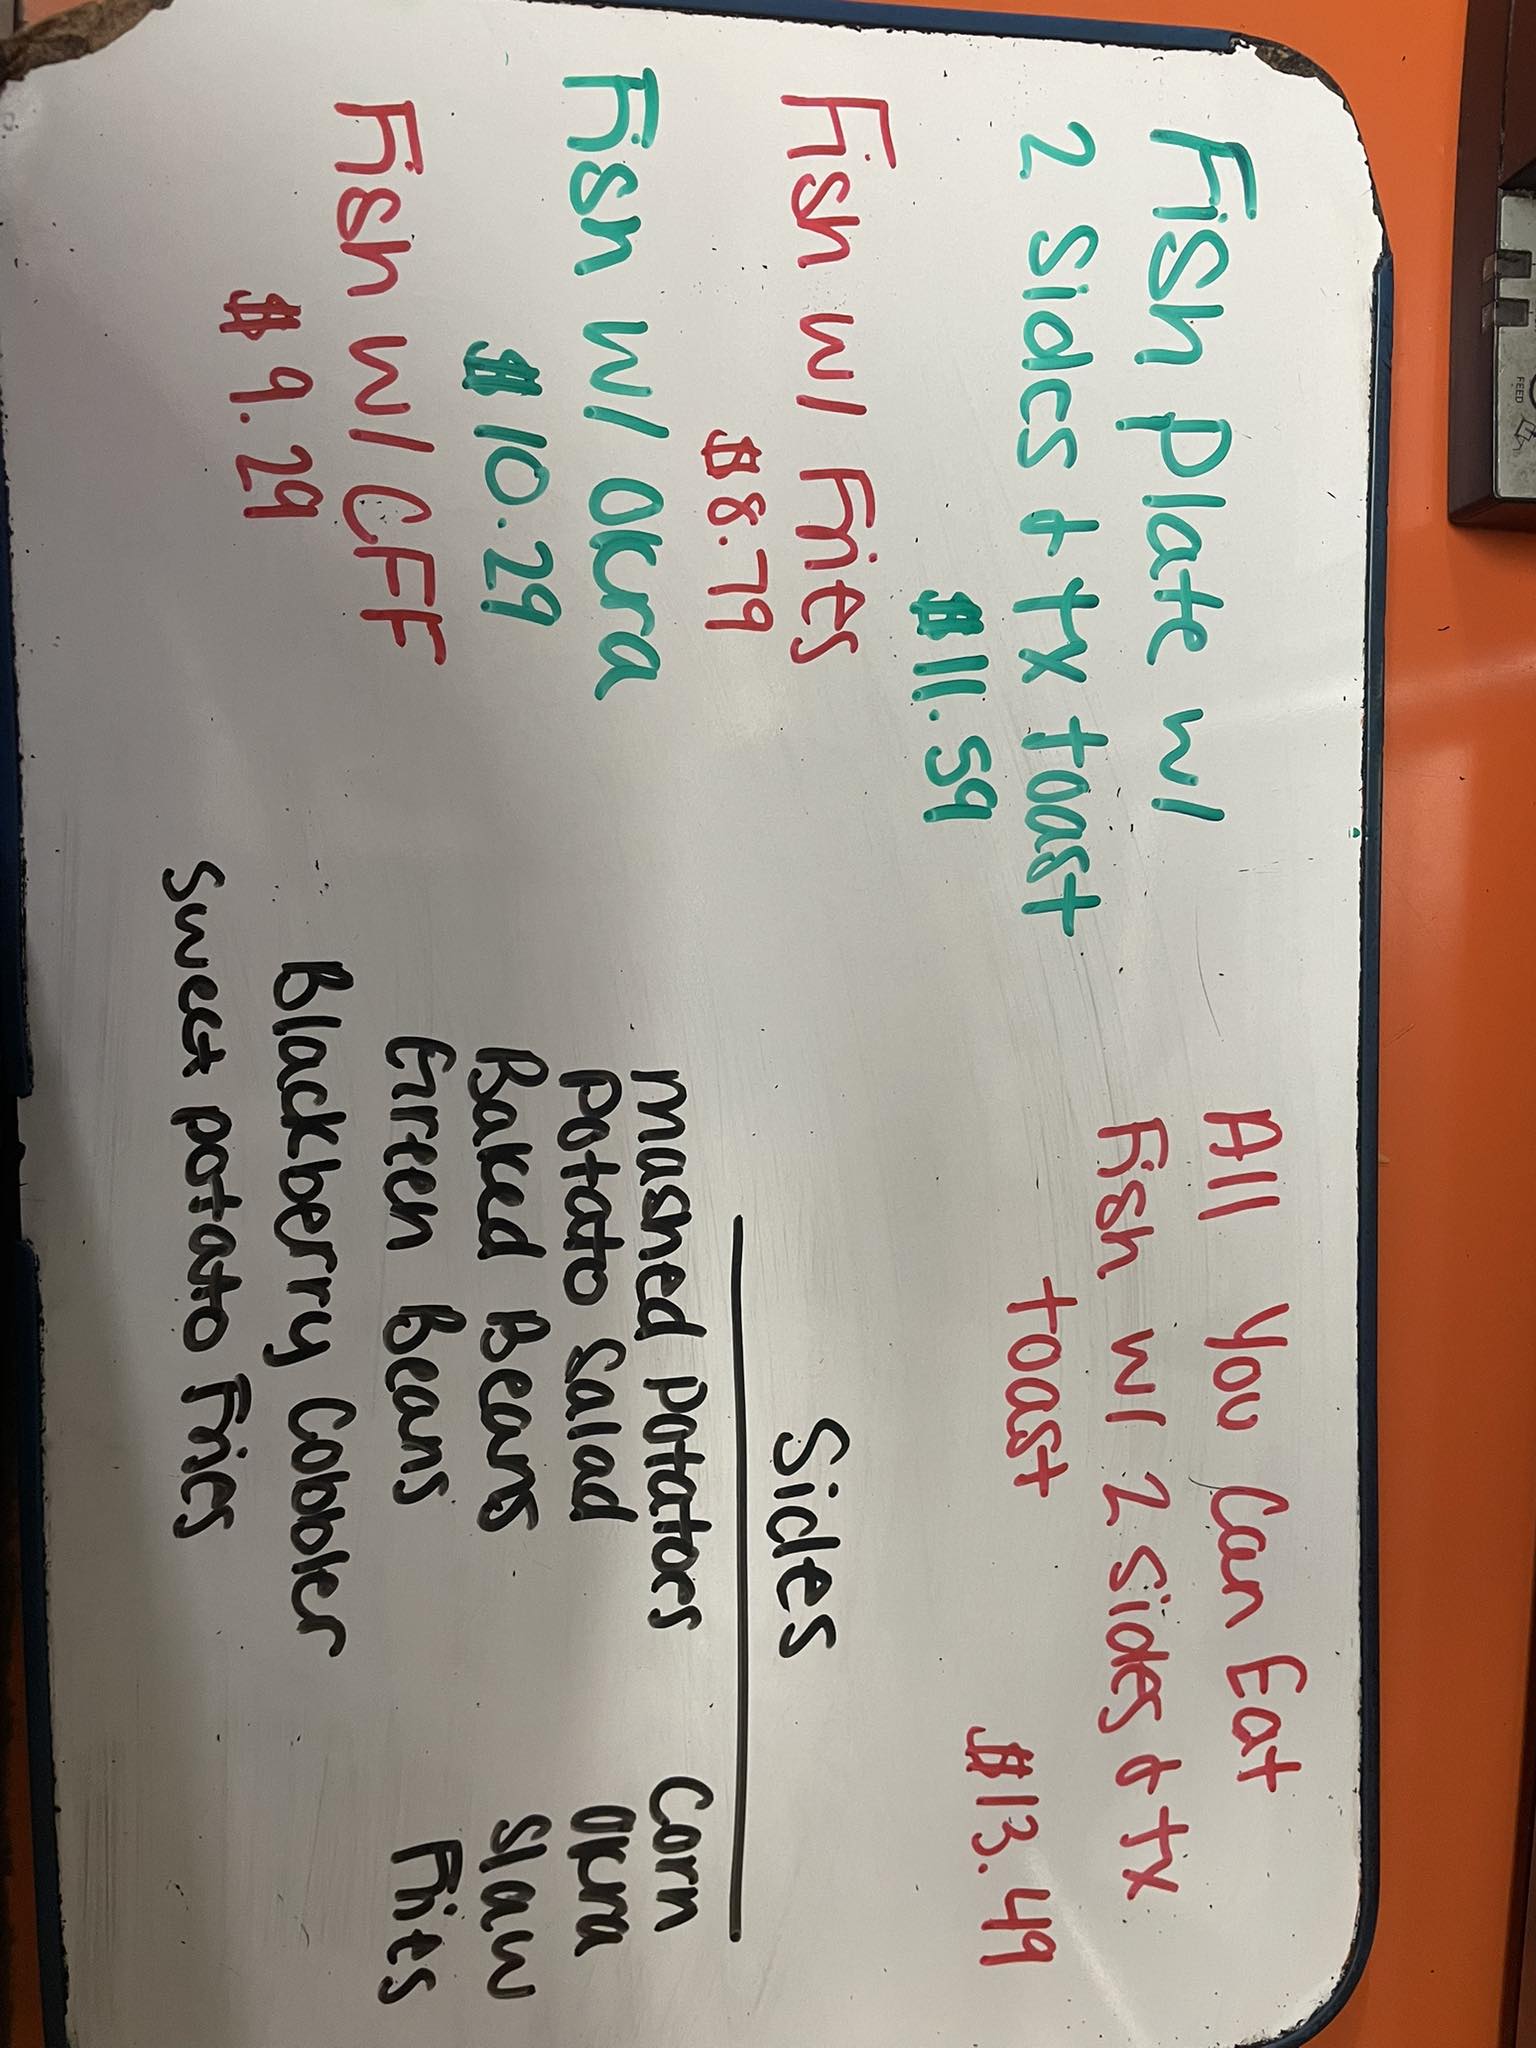 Fish Plate w/
2 sides & tx toast
$11.59
Fish w/ Fries
$8.79
Fish w/ Okra
$10.29
Fish w/ CFF
$9.29
All You Can Eat
Fish w/ 2 sides & tx
toast
$13.49
Sides
Mashed Potatoes
Potato Salad
Baked Beans
Green Beans
Blackberry Cobbler
Sweet Potato Fries
Corn
Okra
Slaw
Fries
FEED